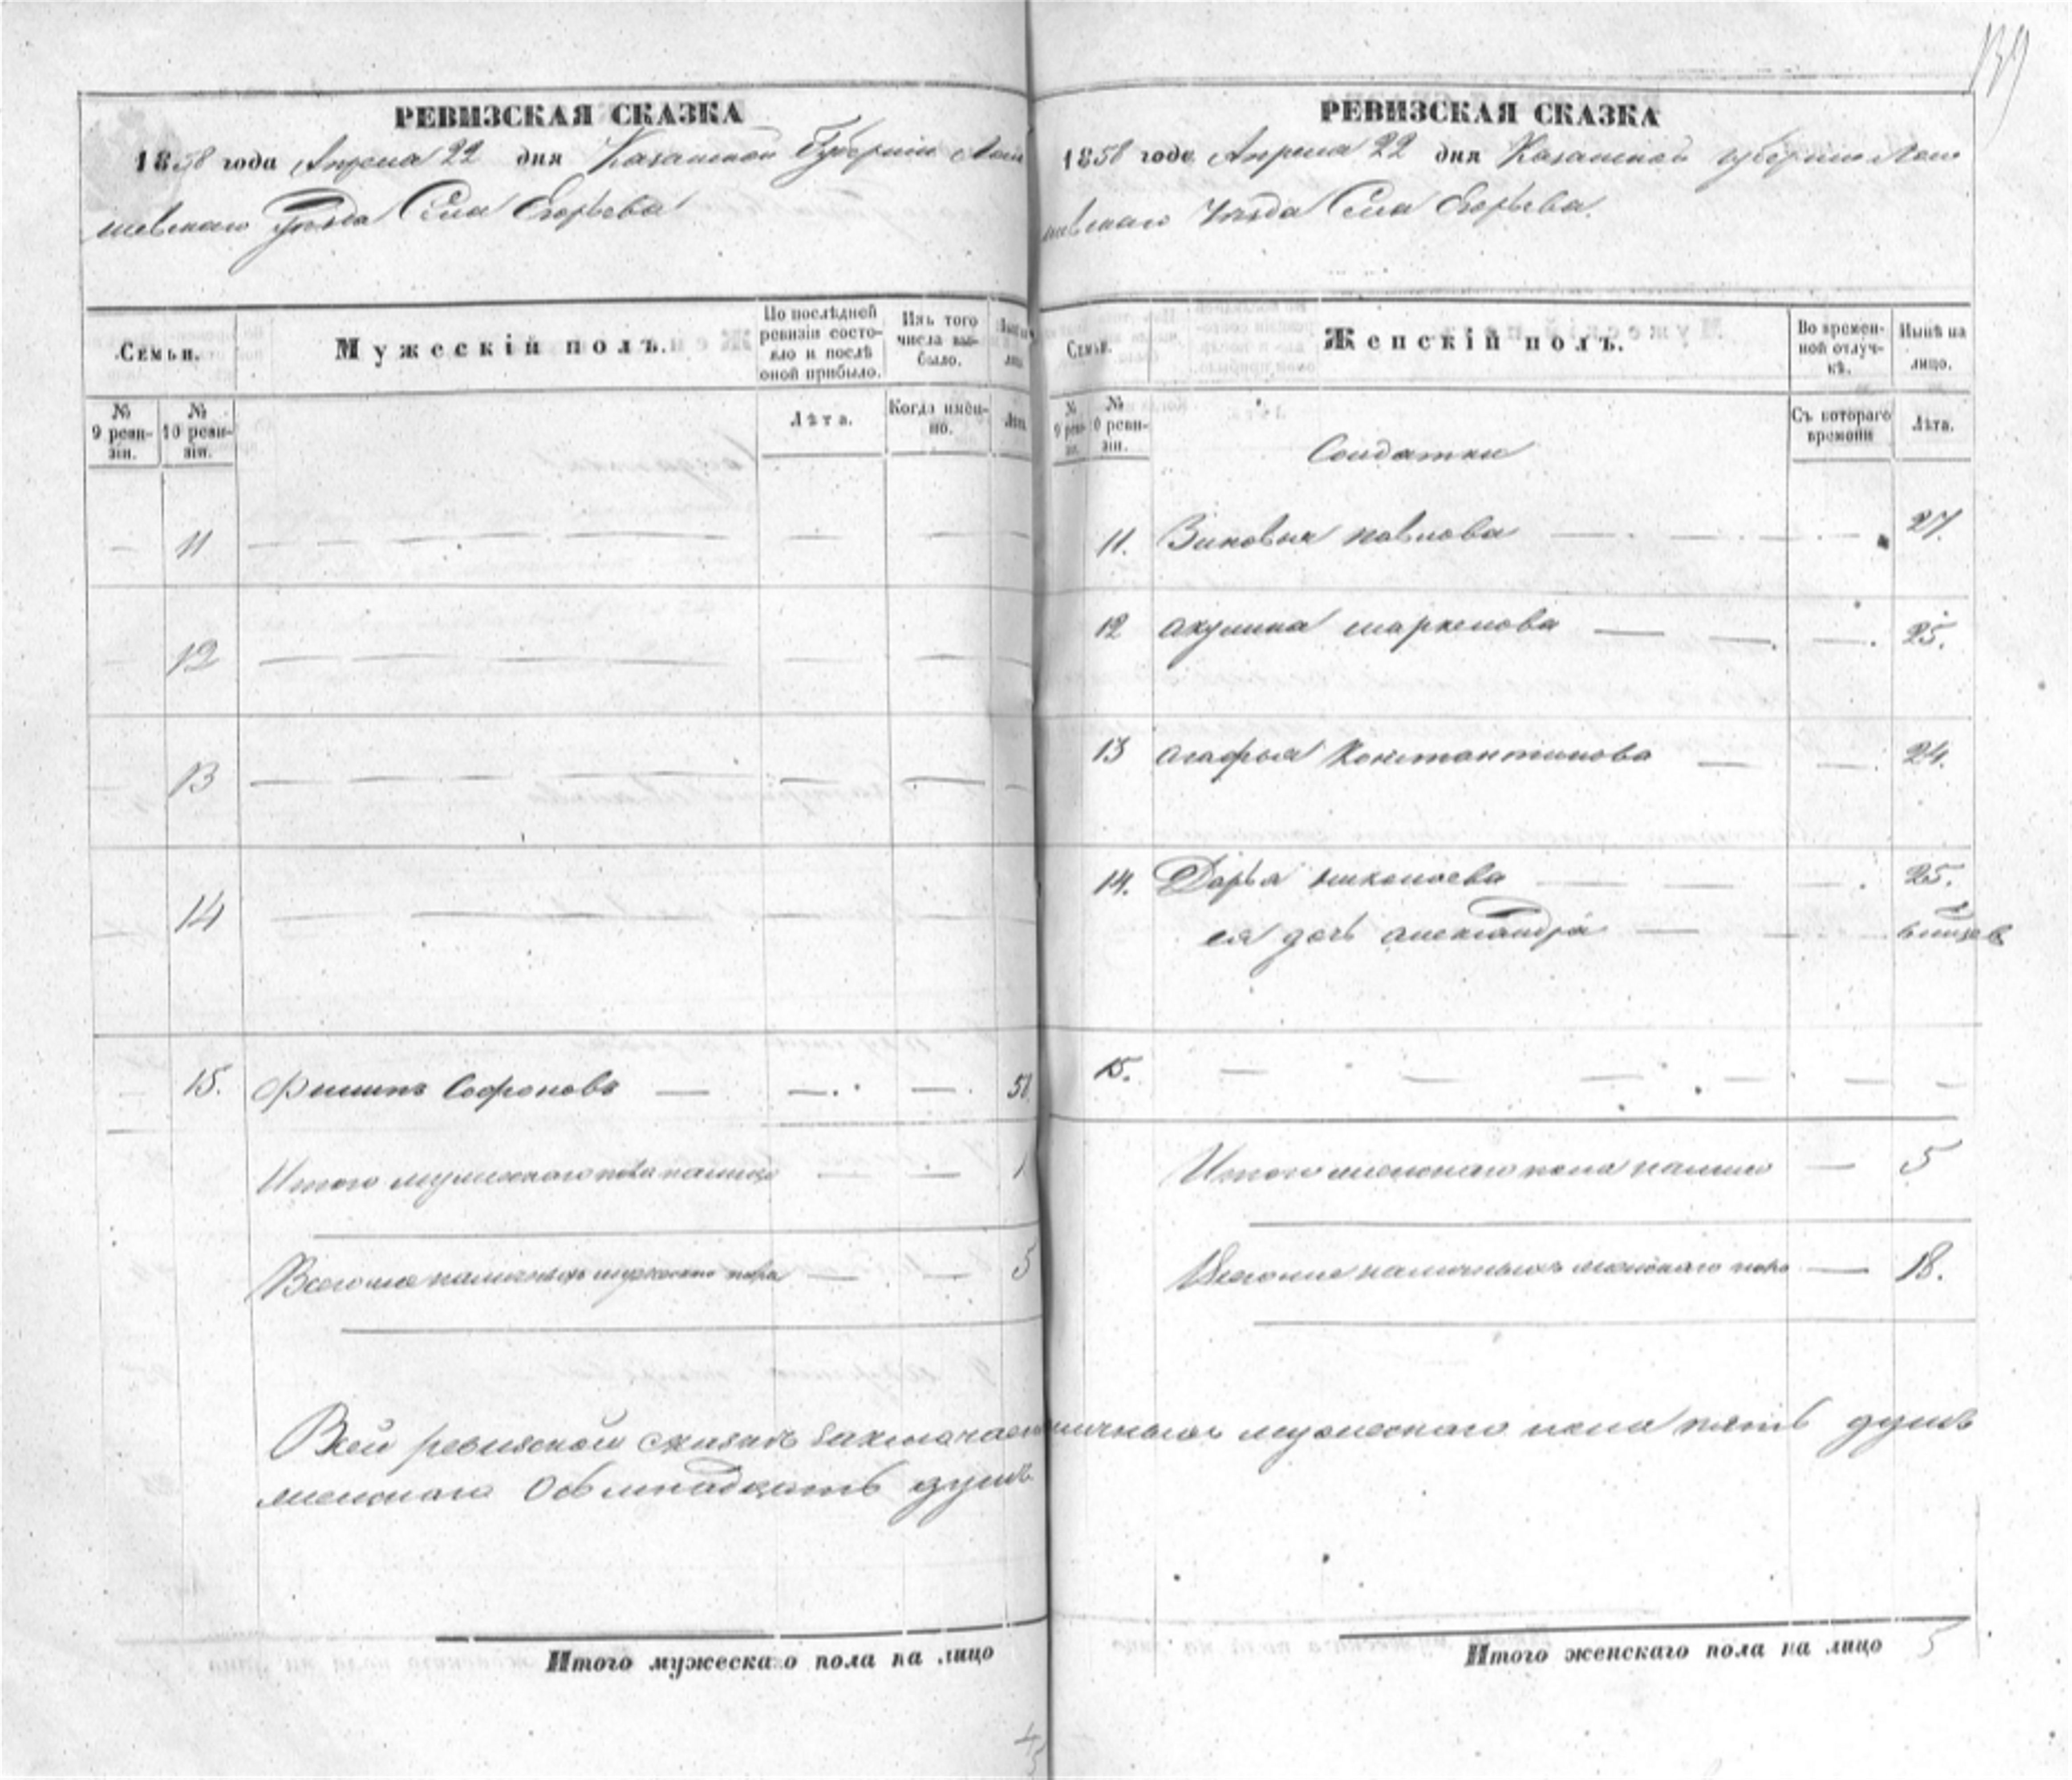 РЕВИЗСКАЯ СКАЗКА
1858 года Апреля 22 дня Казанской Губернии Лаи
шевскаго Уезда Села Егорьева
Семьи.
Мужескій полъ.
По послѣдней ревизіи состо-
яло и послѣ
оной прибыло.
Изъ того
числа вы-
было.
№
9 реви-
зіи.
№
10 реви-
зіи.
Лѣта.
Когда имен-
но.
Лѣта
11
12
13
14
15. Филипъ Софроновъ
Итого мужескаго пола налицо 1
Всего же наличныхъ мужескаго пола 5
Всей ревизской сказкѣ заключает
женскаго Осьмнадцать душъ
Итого мужескаго пола на лицо
139
РЕВИЗСКАЯ СКАЗКА
1858 года Апреля 22 дня Казанской губернии Лаи
шевскаго Уезда Села Егорьева.
Семьи.
Женскій полъ.
Во времен-
ной отлуч-
кѣ.
Нынѣ на
лицо.
№
9 реви-
зіи.
№
10 реви-
зіи.
Съ котораго
времени
Лѣта.
Солдатки
11. Зиновья павлова 27.
12 акулина маркелова 25.
13 агафья Константинова 24.
14. Дарья николаева 25.
ея дочь александра
15.
Итого женскаго пола налицо 5
Всего же наличныхъ женскаго пола 18.
наличныхъ мужескаго пола пять душъ
Итого женскаго пола на лицо 5